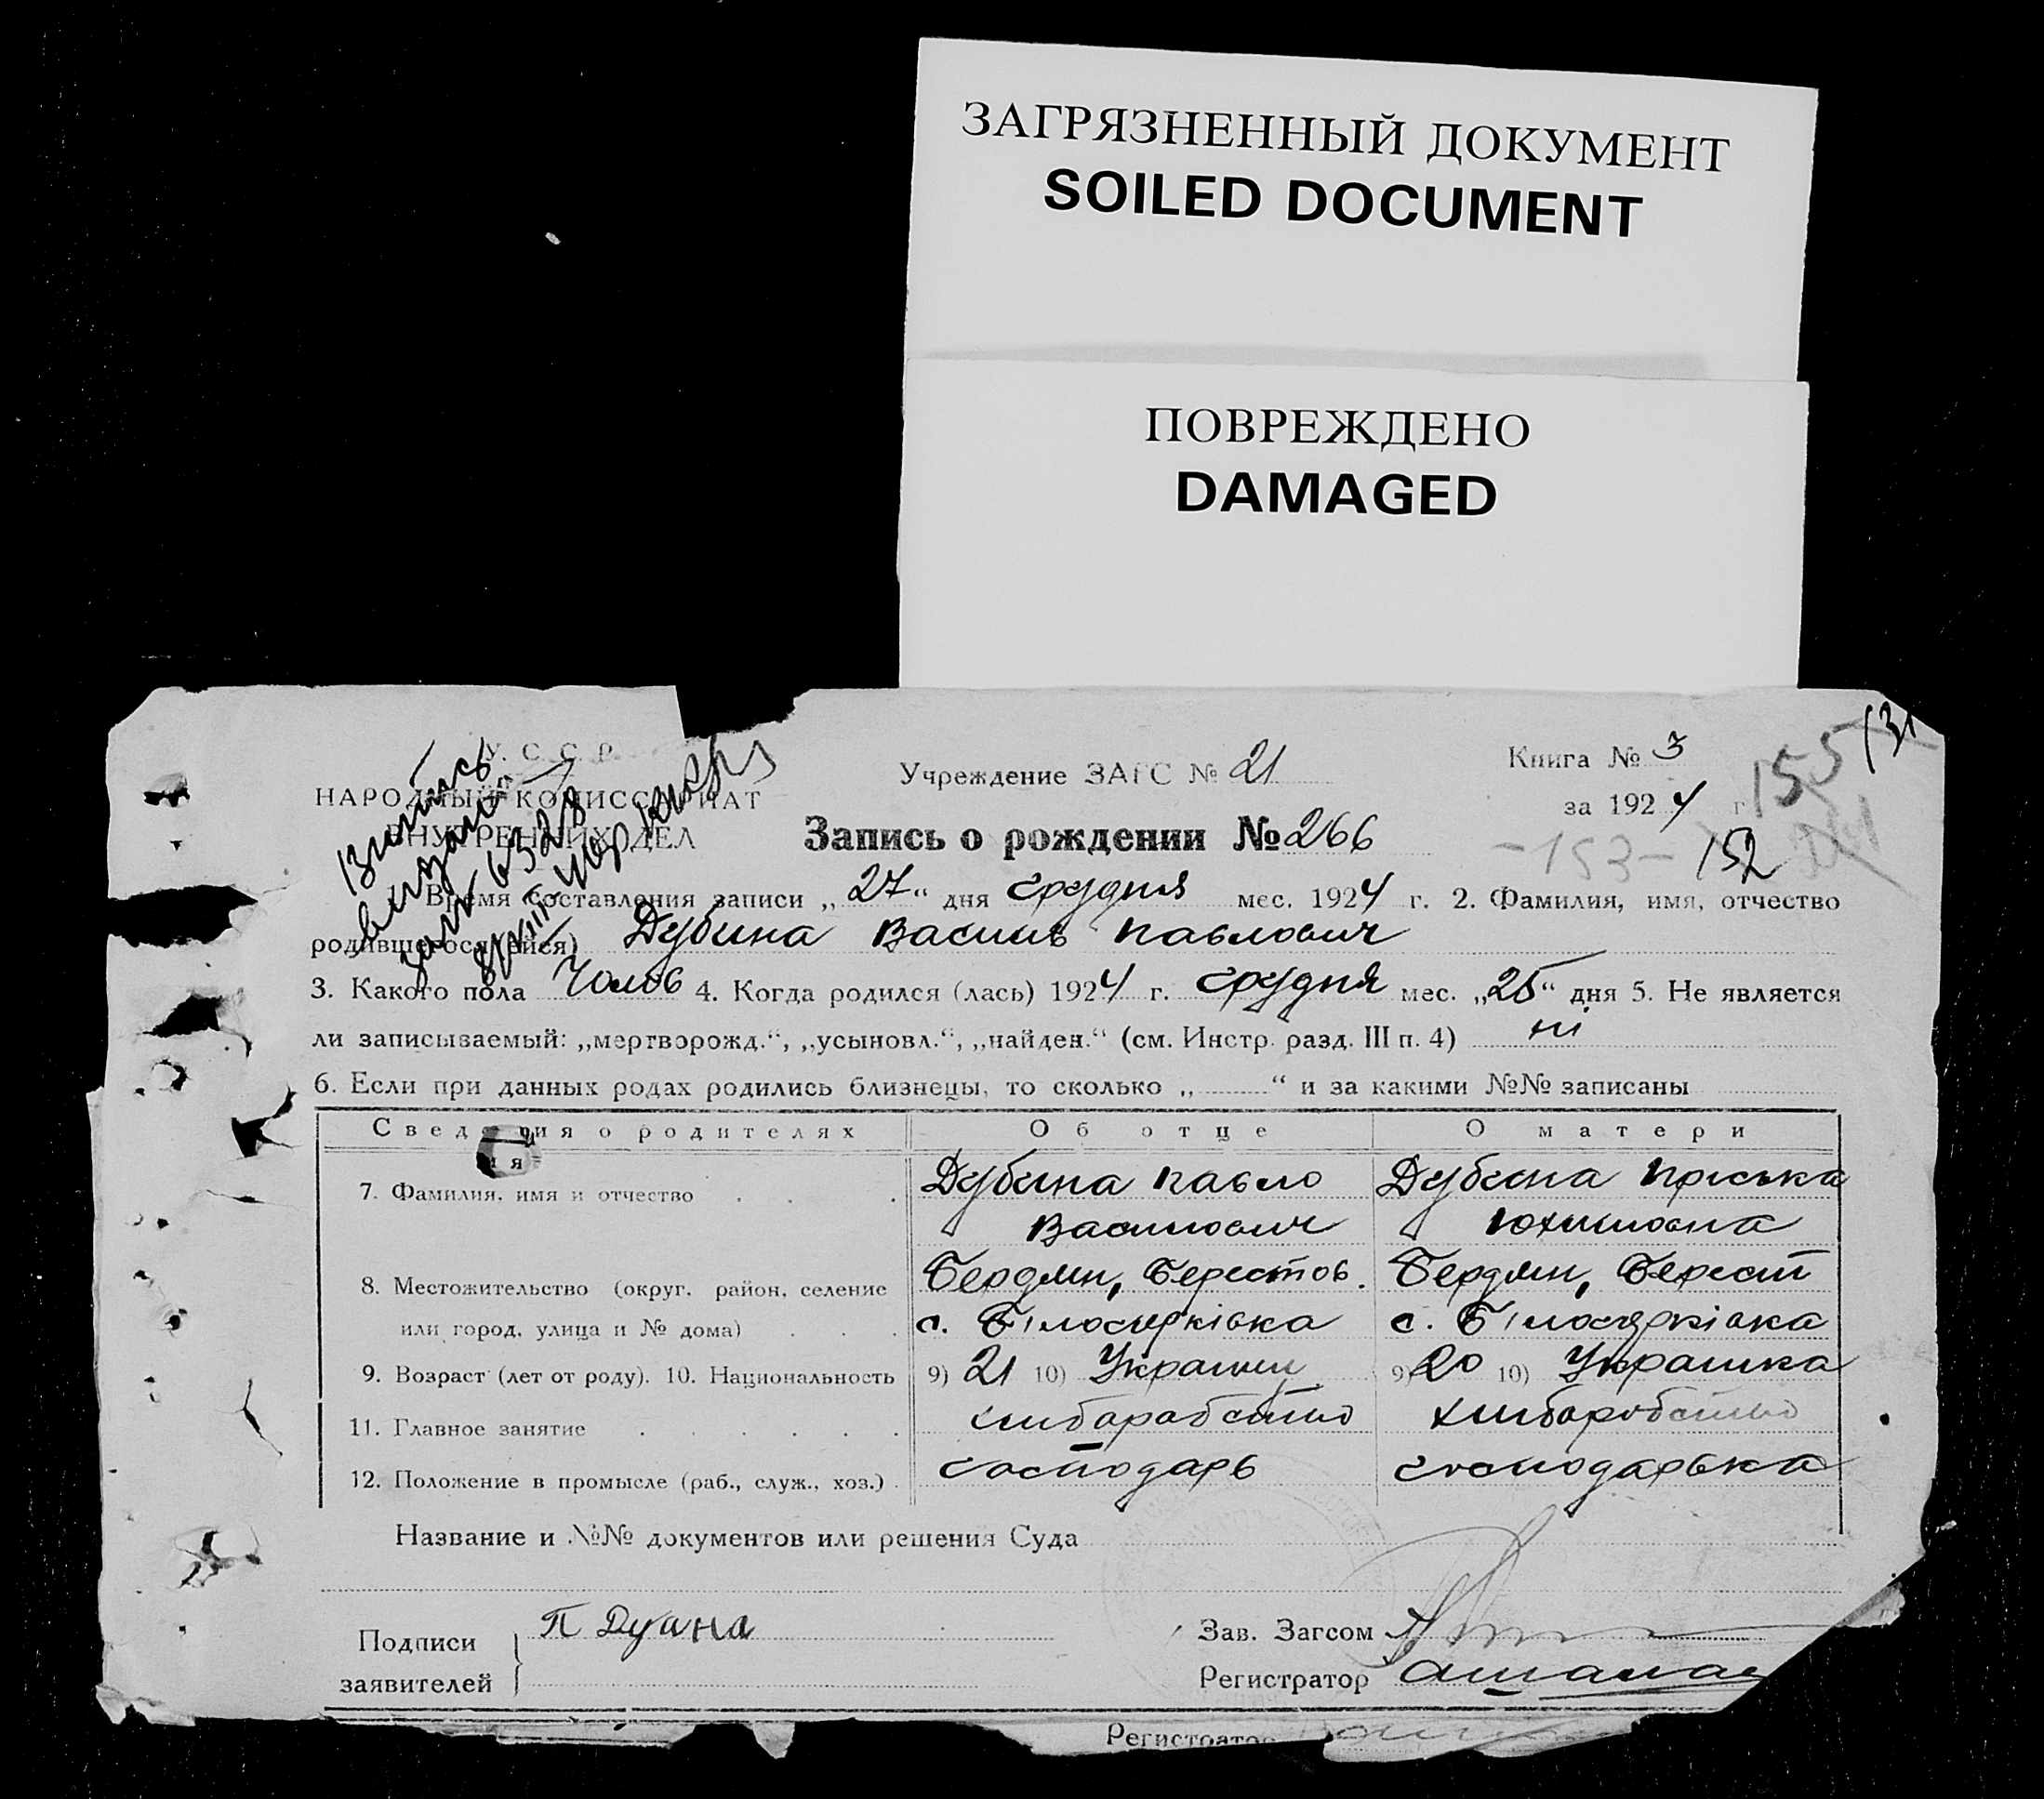 ЗАГРЯЗНЕННЫЙ ДОКУМЕНТ
SOILED DOCUMENT
ПОВРЕЖДЕНО
DAMAGED
У. С. С. Р.
НАРОДНЫЙ КОМИССАРИАТ
ВНУТРЕННИХ ДЕЛ
Учреждение ЗАГС № 21
Книга № 3
за 1924 г
155
131
Запись о рождении № 266
-153- 152
Время составления записи „27“ дня грудня мес. 1924 г. 2. Фамилия, имя, отчество
родившегося (ейся) Дубина Василь Павлович
3. Какого пола Чолов 4. Когда родился (лась) 1924 г. грудня мес. „25“ дня 5. Не является
ли записываемый: „мертворожд.“, „усыновл.“, „найден.“ (см. Инстр. разд. III п. 4) ні
6. Если при данных родах родились близнецы, то сколько „ “ и за какими №№ записаны
Сведения о родителях Об отце О матери
7. Фамилия, имя и отчество Дубина Павло Дубина Пріська
Васильович Юхимовна
8. Местожительство (округ, район, селение Бердян, Берестов. Бердян, Берест
или город, улица и № дома) с. Білоцерківка с. Білоцерківка
9. Возраст (лет от роду). 10. Национальность 9) 21 10) Украинец 9) 20 10) Украинка
11. Главное занятие хлибарабство хлибаробство
12. Положение в промысле (раб., служ., хоз.) господарь господарька
Название и №№ документов или решения Суда
Подписи П Дубина
заявителей
Зав. Загсом
Регистратор
Регистратор